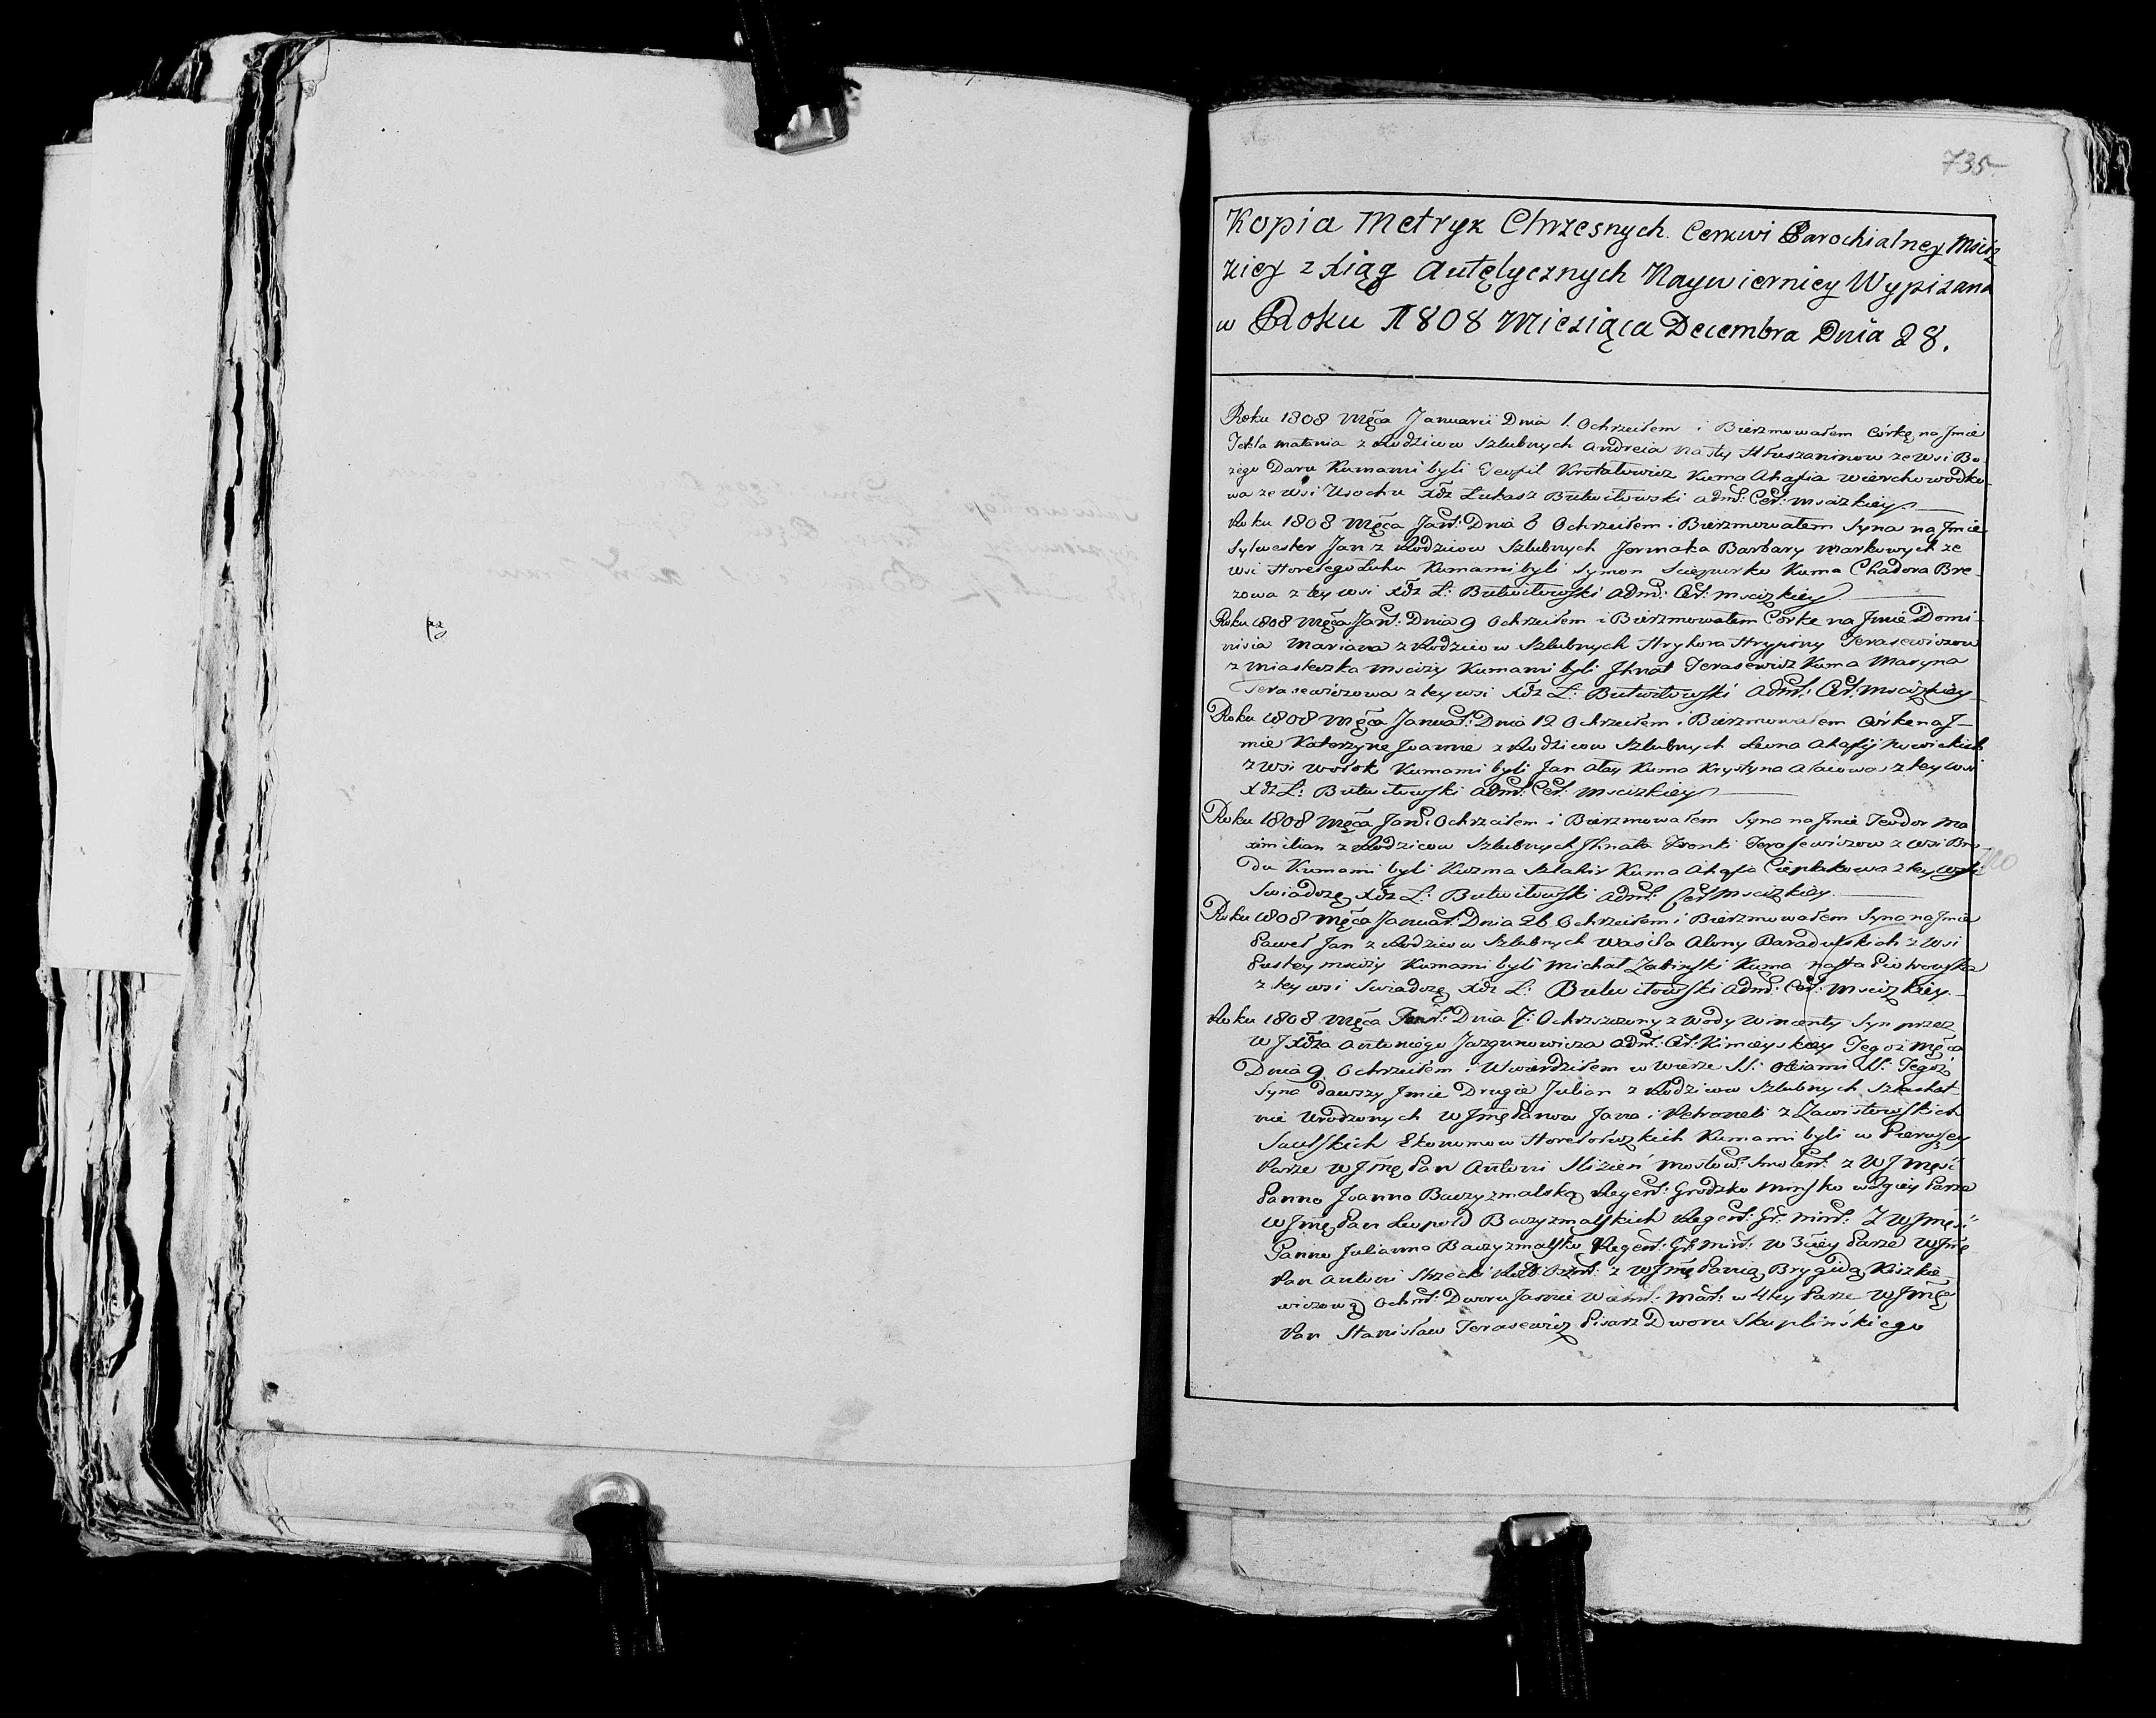 735
Kopia Metryk Chrzesnych Cerkwi Parochialney Mściż
kiey z Xiąg Autętycznych Naywierniey Wypisana
w Roku 1808 Miesiąca Decembra Dnia 28.
Roku 1808 Męca Januarii Dnia 1. Ochrzciłem i Bierzmowałem Córkę na Jmie
Tekla Matania z Rodzicow Szlubnych Andreia Nasty Hłuszaninow ze Wsi Bo-
żego Daru Kumami byli Teofil Krotatowicz Kuma Ahafia Wierchowodko
wa ze Wsi Usochu Xdz Łukasz Butwiłowski Adm: Cer: Msciżkiey
Roku 1808 Męca Jan: Dnia 6 Ochrzciłem i Bierzmowałem Syna na Jmie
Sylwester Jan z Rodzicow Szlubnych Jermaka Barbary Markowych ze
Wsi Horełego Łuhu Kumami byli Symon Sciepurko Kuma Chadora Bre-
zowa z tey wsi Xdz Ł: Butwiłowski Adm: Cer: Msciżkiey
Roku 1808 Męca Jan: Dnia 9 Ochrzciłem i Bierzmowałem Córke na Jmie Domi-
nisia Marianna z Rodzicow Szlubnych Hryhora Hrypiny Terasewiczow
z Miasteczka Msciży Kumami byli Jhnat Terasewicz Kuma Maryna
Terasewiczowa z tey wsi Xdz Ł: Butwiłowski Adm: Cer: Msciżkiey
Roku 1808 Męca Januar: Dnia 12 Ochrzciłem i Bierzmowałem Córke na J-
mie Katerzyne Joanne z Rodzicow Szlubnych Leona Ahafij Nowickich
z Wsi Wołok Kumami byli Jan Ałay Kuma Krystyna Ałaiowa z tey wsi
Xdz Ł: Butwiłowski Adm: Cer: Msciżkiey
Roku 1808 Męca Jan: Ochrzciłem i Bierzmowałem Syna na Jmie Teodor Ma
ximilian z Rodzicow Szlubnych Jhnata Zienki Terasewiczow z Wsi Bro
du Kumami byli Kuzma Szlahir Kuma Ahafia Cieplakowa z tey wsi
Swiadczę Xdz Ł: Butwiłowski Adm: Cer: Msciżkiey
Roku 1808 Męca Januar: Dnia 26 Ochrzciłem i Bierzmowałem Syna na Jmie
Paweł Jan z Rodzicow Szlubnych Wasila Alony Baradulskich z Wsi
Pustey Msciży Kumami byli Michał Zabinski Kuma Nasta Piotrowska
z tey wsi Swiadczę Xdz Ł: Butwiłowski Adm: Cer: Msciżkiey
Roku 1808 Męca Jan: Dnia 7: Ochrzszczony z Wody Wincenty Syn przez
W J Xdza Antoniego Jazgunowicza Adm: Cer: Kimieyskiey Tegoż Męca
Dnia 9 Ochrzciłem i Utwierdziłem w Wierze SS: Oleiami SS: Tegoż
Syna dawszy Jmie Drugie Julian z Rodzicow Szlubnych Szlachet-
nie Urodzonych WJmę Panow Jana i Petroneli z Zawistowskich
Sucesskich Ekonomow Horełołużkich Kumami byli w Pierwszey
Parze WJmę Pan Antoni Slizień Mostow: Smolen: z WJMęść
Panno Joanno Baczyzmalską Regent: Grodzko Minsko w 2giey Parze
WJmę Pan Leopold Baczyzmalskich Regent: Gr: Min: Z WJmęść
Panno Julianno Baczyzmalsko Regent: Gr: Min: w 3ciey Parze WJmę
Pan Antoni Skrzecki z WJmę Panią Brygidą Kiszkie
wiczową Ochm: Dworu w 4tey Parze WJmę
Pan Stanisław Terasewicz Pisarz Dworu Skuplińskiego